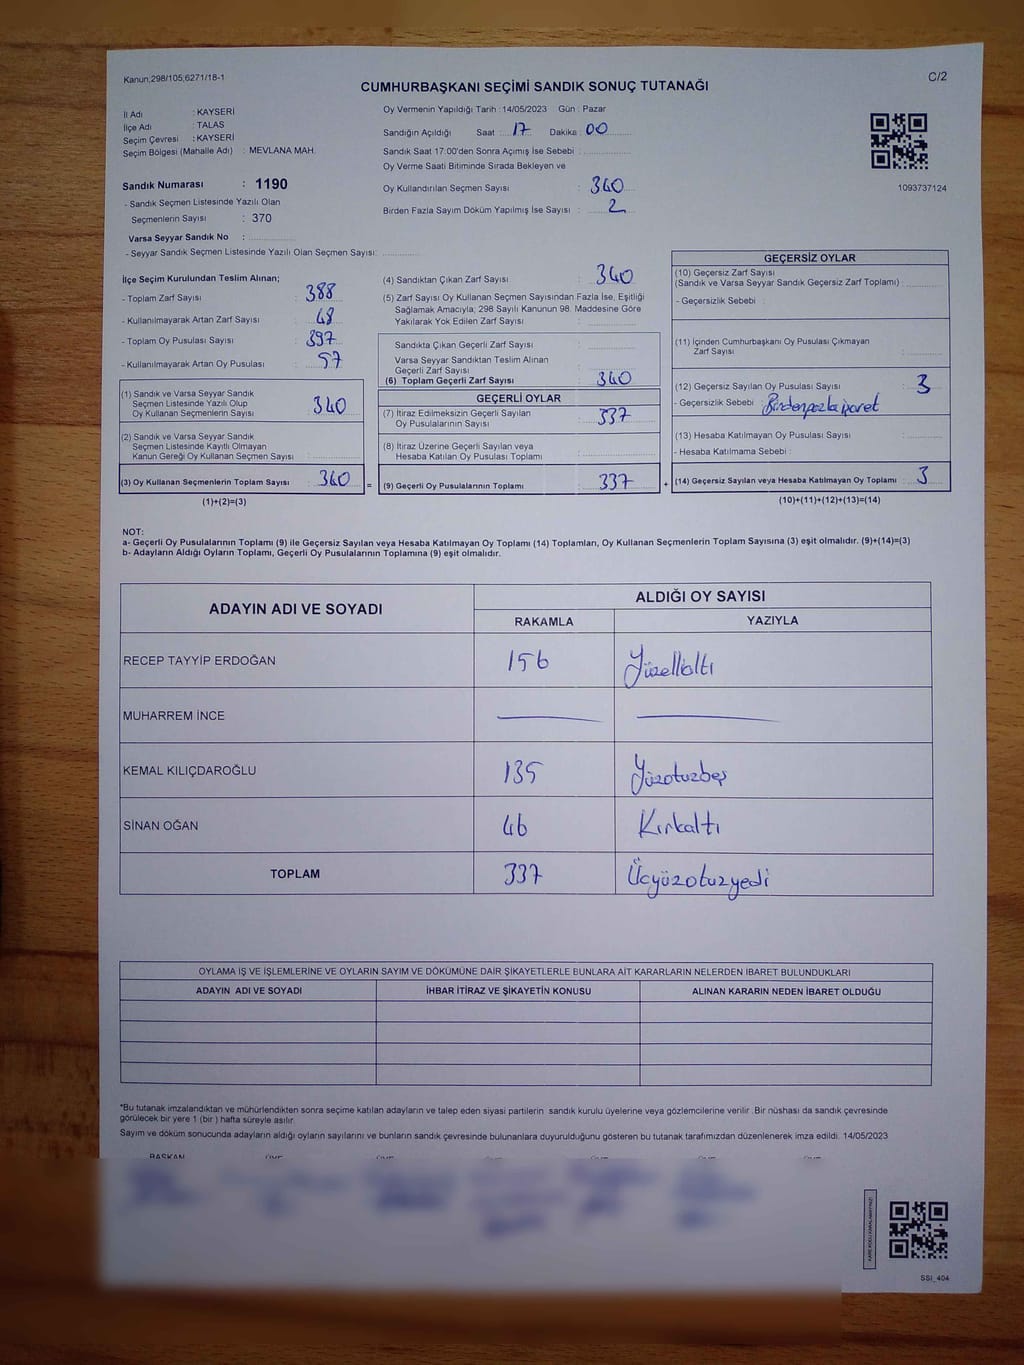 Kanun;298/105;6271/18-1
C/2
CUMHURBAŞKANI SEÇİMİ SANDIK SONUÇ TUTANAĞI
İl Adı : KAYSERİ
İlçe Adı : TALAS
Seçim Çevresi : KAYSERİ
Seçim Bölgesi (Mahalle Adı) : MEVLANA MAH.
Sandık Numarası : 1190
- Sandık Seçmen Listesinde Yazılı Olan
Seçmenlerin Sayısı : 370
Varsa Seyyar Sandık No :
- Seyyar Sandık Seçmen Listesinde Yazılı Olan Seçmen Sayısı:
Oy Vermenin Yapıldığı Tarih : 14/05/2023 Gün : Pazar
Sandığın Açıldığı Saat : 17 Dakika : 00
Sandık Saat 17:00'den Sonra Açımış İse Sebebi :
Oy Verme Saati Bitiminde Sırada Bekleyen ve
Oy Kullandırılan Seçmen Sayısı : 340
Birden Fazla Sayım Döküm Yapılmış İse Sayısı : 2
1093737124
İlçe Seçim Kurulundan Teslim Alınan;
- Toplam Zarf Sayısı : 388
- Kullanılmayarak Artan Zarf Sayısı : 48
- Toplam Oy Pusulası Sayısı : 397
- Kullanılmayarak Artan Oy Pusulası : 57
(1) Sandık ve Varsa Seyyar Sandık
Seçmen Listesinde Yazılı Olup
Oy Kullanan Seçmenlerin Sayısı : 340
(2) Sandık ve Varsa Seyyar Sandık
Seçmen Listesinde Kayıtlı Olmayan
Kanun Gereği Oy Kullanan Seçmen Sayısı :
(3) Oy Kullanan Seçmenlerin Toplam Sayısı : 340
(1)+(2)=(3)
=
(4) Sandıktan Çıkan Zarf Sayısı : 340
(5) Zarf Sayısı Oy Kullanan Seçmen Sayısından Fazla İse, Eşitliği
Sağlamak Amacıyla; 298 Sayılı Kanunun 98. Maddesine Göre
Yakılarak Yok Edilen Zarf Sayısı :
Sandıkta Çıkan Geçerli Zarf Sayısı :
Varsa Seyyar Sandıktan Teslim Alınan
Geçerli Zarf Sayısı :
(6) Toplam Geçerli Zarf Sayısı : 340
GEÇERLİ OYLAR
(7) İtiraz Edilmeksizin Geçerli Sayılan
Oy Pusulalarının Sayısı : 337
(8) İtiraz Üzerine Geçerli Sayılan veya
Hesaba Katılan Oy Pusulası Toplamı :
(9) Geçerli Oy Pusulalarının Toplamı : 337
+
GEÇERSİZ OYLAR
(10) Geçersiz Zarf Sayısı
(Sandık ve Varsa Seyyar Sandık Geçersiz Zarf Toplamı) :
- Geçersizlik Sebebi :
(11) İçinden Cumhurbaşkanı Oy Pusulası Çıkmayan
Zarf Sayısı :
(12) Geçersiz Sayılan Oy Pusulası Sayısı : 3
- Geçersizlik Sebebi : Birdenfazla işaret
(13) Hesaba Katılmayan Oy Pusulası Sayısı :
- Hesaba Katılmama Sebebi :
(14) Geçersiz Sayılan veya Hesaba Katılmayan Oy Toplamı : 3
(10)+(11)+(12)+(13)=(14)
NOT:
a- Geçerli Oy Pusulalarının Toplamı (9) ile Geçersiz Sayılan veya Hesaba Katılmayan Oy Toplamı (14) Toplamları, Oy Kullanan Seçmenlerin Toplam Sayısına (3) eşit olmalıdır. (9)+(14)=(3)
b- Adayların Aldığı Oyların Toplamı, Geçerli Oy Pusulalarının Toplamına (9) eşit olmalıdır.
ADAYIN ADI VE SOYADI
ALDIĞI OY SAYISI
RAKAMLA YAZIYLA
RECEP TAYYİP ERDOĞAN 156 Yüzellialtı
MUHARREM İNCE
KEMAL KILIÇDAROĞLU 135 Yüzotuzbeş
SİNAN OĞAN 46 Kırkaltı
TOPLAM 337 Üçyüzotuzyedi
OYLAMA İŞ VE İŞLEMLERİNE VE OYLARIN SAYIM VE DÖKÜMÜNE DAİR ŞİKAYETLERLE BUNLARA AİT KARARLARIN NELERDEN İBARET BULUNDUKLARI
ADAYIN ADI VE SOYADI İHBAR İTİRAZ VE ŞİKAYETİN KONUSU ALINAN KARARIN NEDEN İBARET OLDUĞU
*Bu tutanak imzalandıktan ve mühürlendikten sonra seçime katılan adayların ve talep eden siyasi partilerin sandık kurulu üyelerine veya gözlemcilerine verilir. Bir nüshası da sandık çevresinde
görülecek bir yere 1 (bir) hafta süreyle asılır.
Sayım ve döküm sonucunda adayların aldığı oyların sayılarını ve bunların sandık çevresinde bulunanlara duyurulduğunu gösteren bu tutanak tarafımızdan düzenlenerek imza edildi. 14/05/2023
BAŞKAN
SSI_404